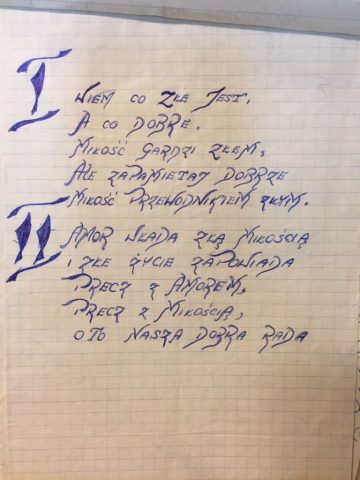 I
WIEM CO ZŁE JEST,
A CO DOBRE.
MIŁOŚĆ GARDZI ZŁEM,
ALE ZAPAMIETAJ DOBRZE
MIŁOŚĆ PRZEWODNIKIEM ZŁYM.
II
AMOR WŁADA ZŁĄ MIŁOŚCIĄ
I ZŁE ŻYCIE ZAPOWIADA
PRECZ Z AMOREM,
PRECZ Z MIŁOŚCIĄ,
OTO NASZA DOBRA RADA